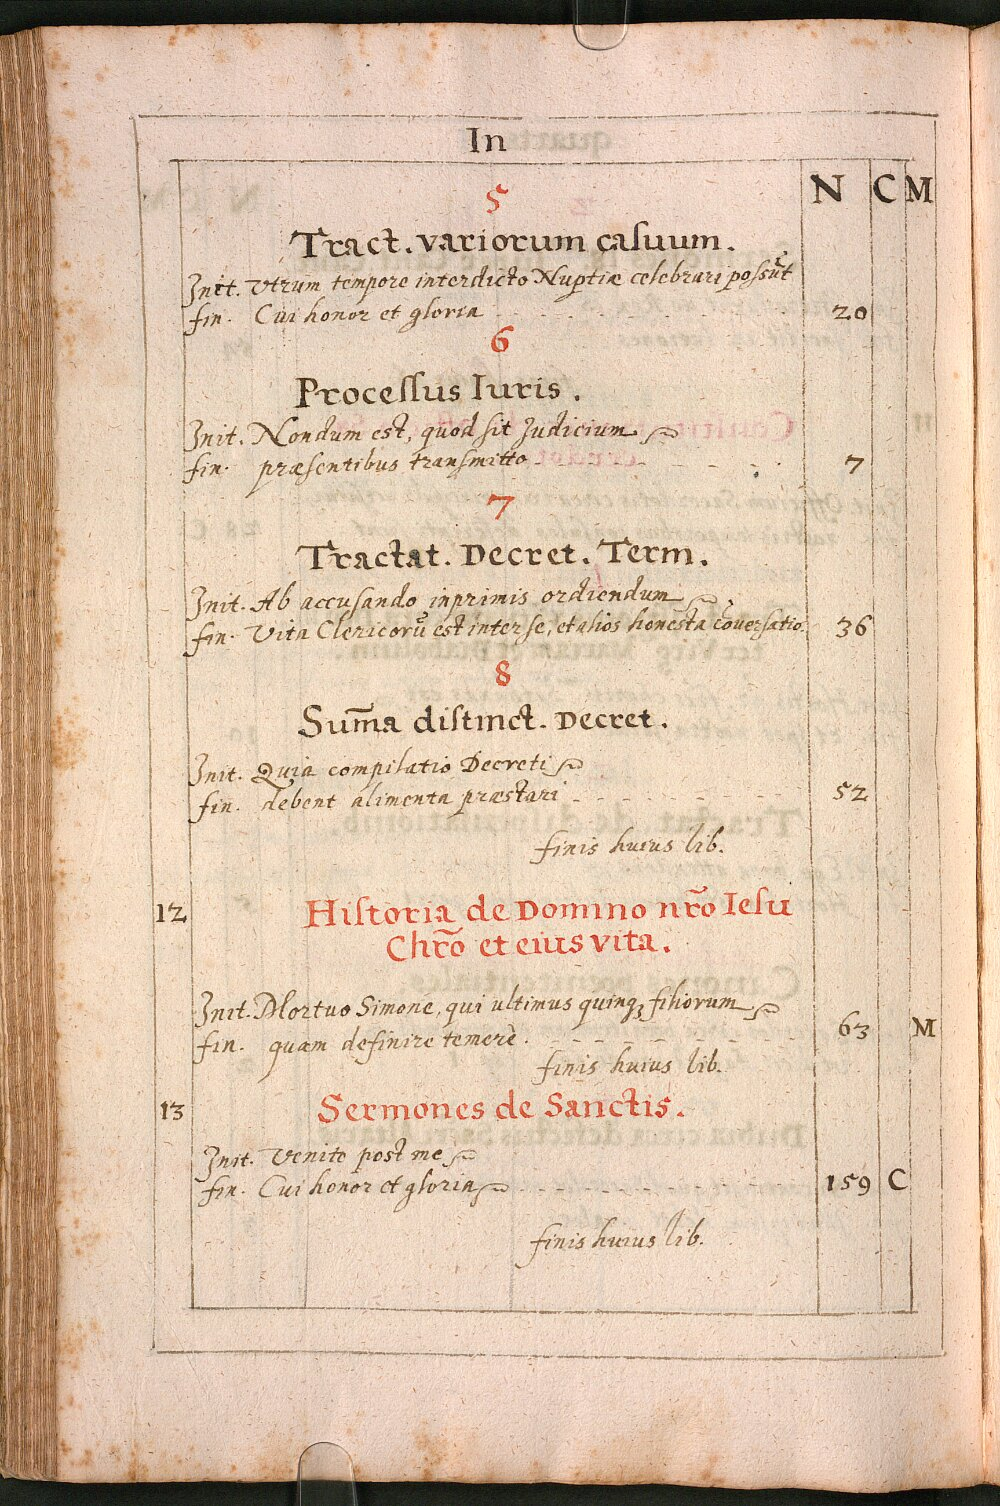 In
N C M
5
Tract. variorum casuum.
Init. Vtrum tempore interdicto Nuptiæ celebrari possūt
fin. Cui honor et gloria 20
6
Processus Iuris.
Init. Nondum est, quod sit Judicium
fin. præsentibus transmitto 7
7
Tractat. Decret. Term.
Init. Ab accusando inprimis ordiendum
fin. Vita Clericorū est inter se, et alios honesta cōuersatio. 36
8
Sum̄a distinct. Decret.
Init. Quia compilatio Decreti
fin. debent alimenta præstari 52
finis huius lib.
12 Historia de Domino nr̄o Iesu
Chr̄o et eius vita.
Init. Mortuo Simone, qui ultimus quinqꝫ filiorum
fin. quam definire temerè. 63 M
finis huius lib.
13 Sermones de Sanctis.
Init. Venite post me
fin. Cui honor et gloria 159 C
finis huius lib.